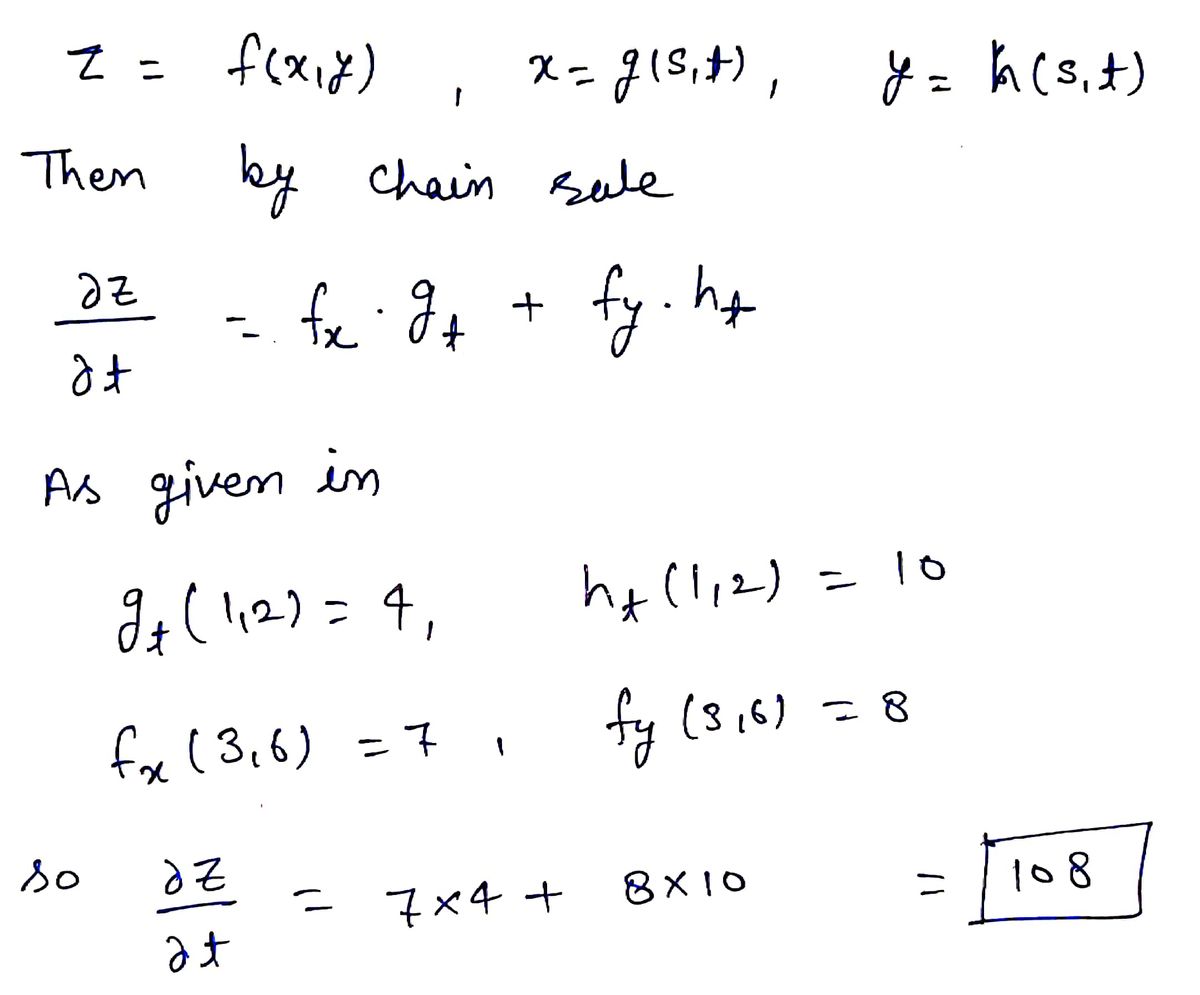 z = f(x,y) , x = g(s,t), y = h(s,t)
Then by chain rule
∂z/∂t = fx · gt + fy · ht
As given in
gt(1,2) = 4, ht(1,2) = 10
fx(3,6) = 7, fy(3,6) = 8
so ∂z/∂t = 7×4 + 8×10 = 108